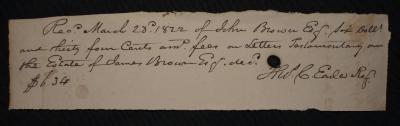 Recd. March 23d. 1822 of John Brown Esq. six Dolls
and thirty four Cents amt. fees on Letters Testamentary on
the Estate of James Brown Esq. decd.
$6.34 Thos. C. Earle Regr.